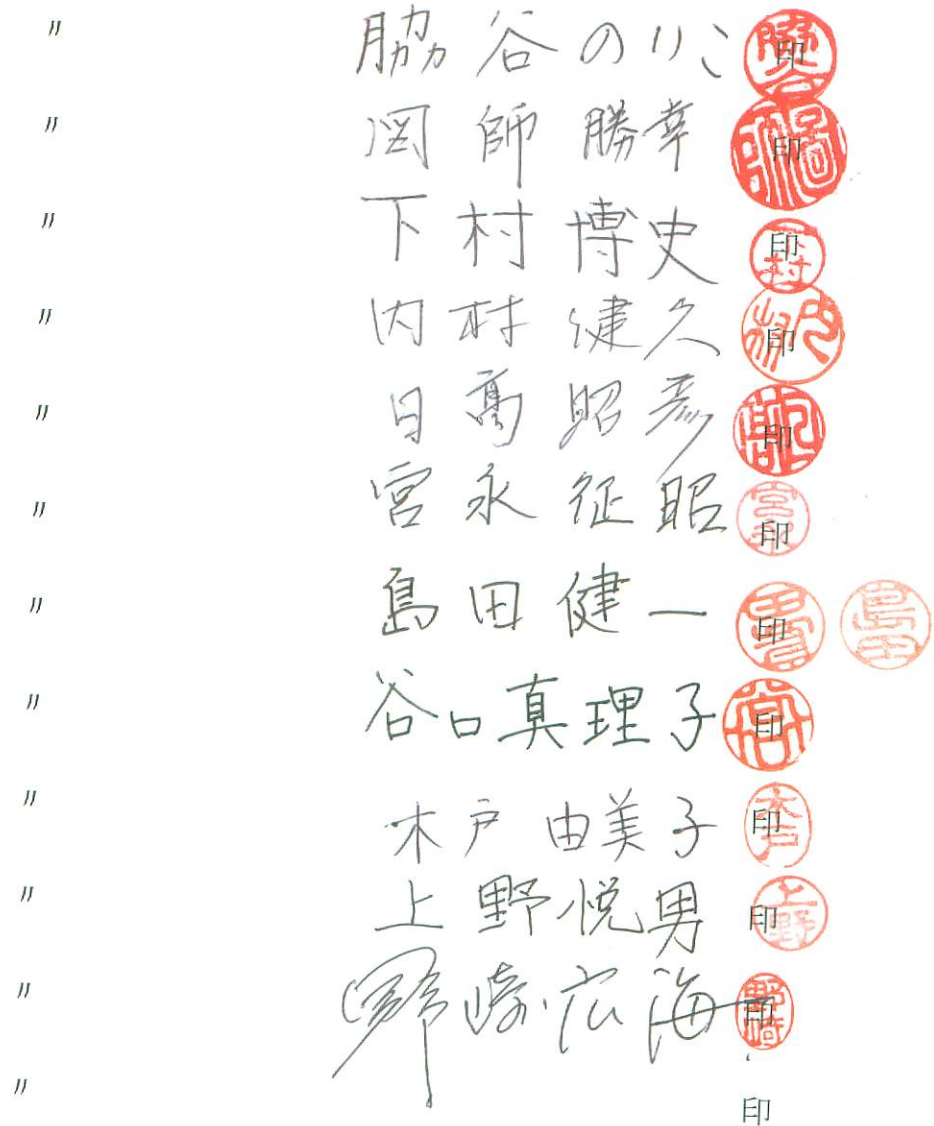 〃 脇谷のりこ 印
〃 図師勝幸 印
〃 下村博史 印
〃 内村健久 印
〃 日髙昭彦 印
〃 宮永征昭 印
〃 島田健一 印 島田
〃 谷口真理子 印
〃 木戸由美子 印
〃 上野悦男 印
〃 野崎広海 印
〃 印